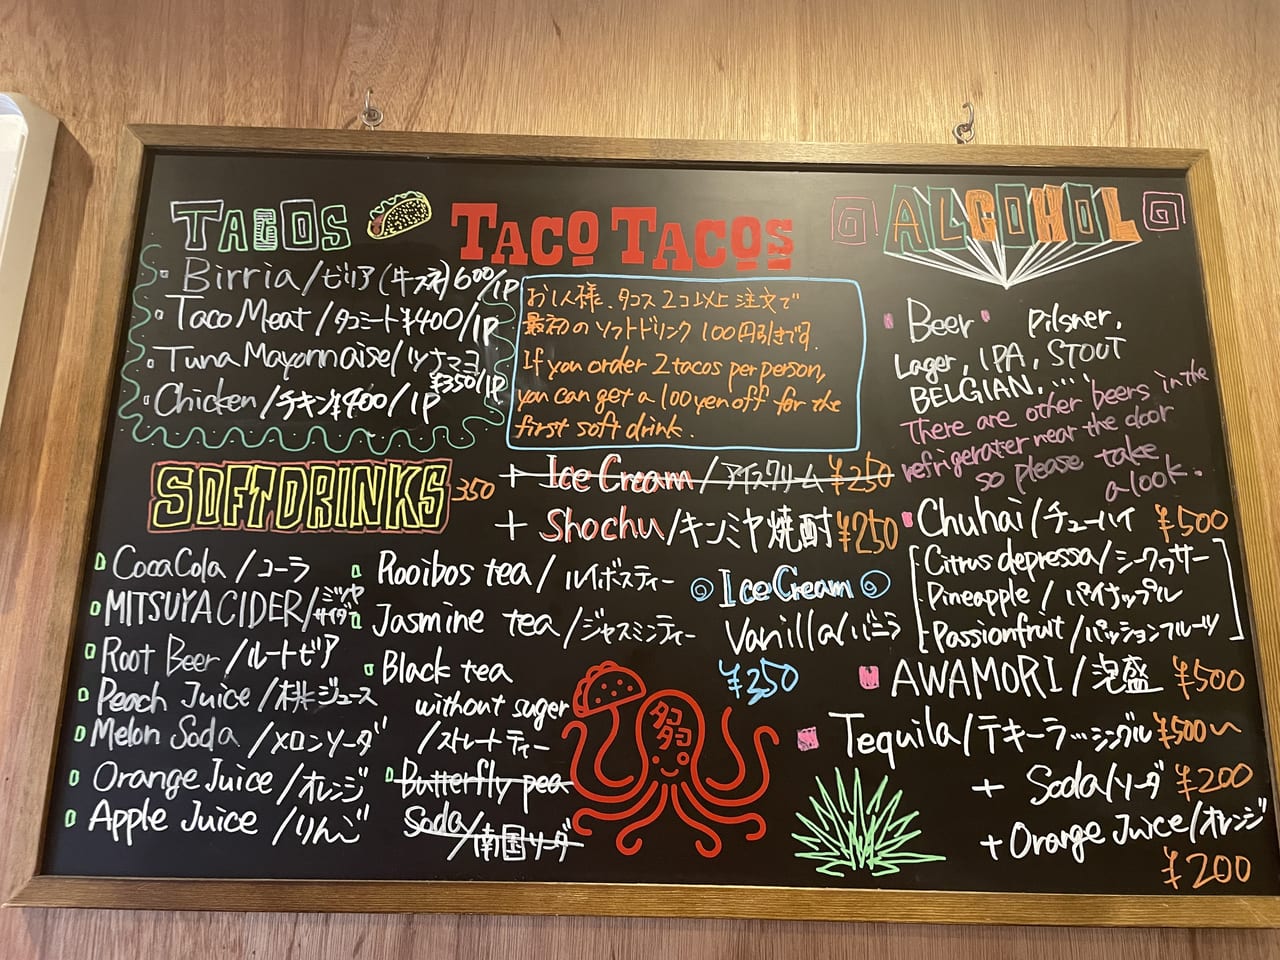 TACOS
Birria/ビリア(牛スネ)600/1P
Taco Meat/タコミート¥400/1P
Tuna Mayonnaise/ツナマヨ
¥350/1P
Chicken/チキン¥400/1P
TACO TACOS
お1人様、タコス2コ以上注文で
最初のソフトドリンク100円引きです.
If you order 2 tacos per person,
you can get a 100 yen off for the
first soft drink.
SOFTDRINKS 350
+ Ice Cream/アイスクリーム ¥250
+ Shochu/キンミヤ焼酎¥250
CocaCola/コーラ
MITSUYA CIDER/ミツヤサイダー
Root Beer/ルートビア
Peach Juice/桃ジュース
Melon Soda/メロンソーダ
Orange Juice/オレンジ
Apple Juice/りんご
Rooibos tea/ルイボスティー
Jasmine tea/ジャスミンティー
Black tea
without suger
/ストレートティー
Butterfly pea
Soda/南国ソーダ
Ice Cream
Vanilla/バニラ
¥350
ALCOHOL
Beer Pilsner,
Lager, IPA, STOUT
BELGIAN, ...
There are other beers in the
refrigerater near the door
so please take
a look.
Chuhai/チューハイ ¥500
Citrus depressa/シークワーサー
Pineapple/パイナップル
Passionfruit/パッションフルーツ
AWAMORI/泡盛 ¥500
Tequila/テキーラ...シングル¥500〜
+ Soda/ソーダ ¥200
+Orange Juice/オレンジ
¥200